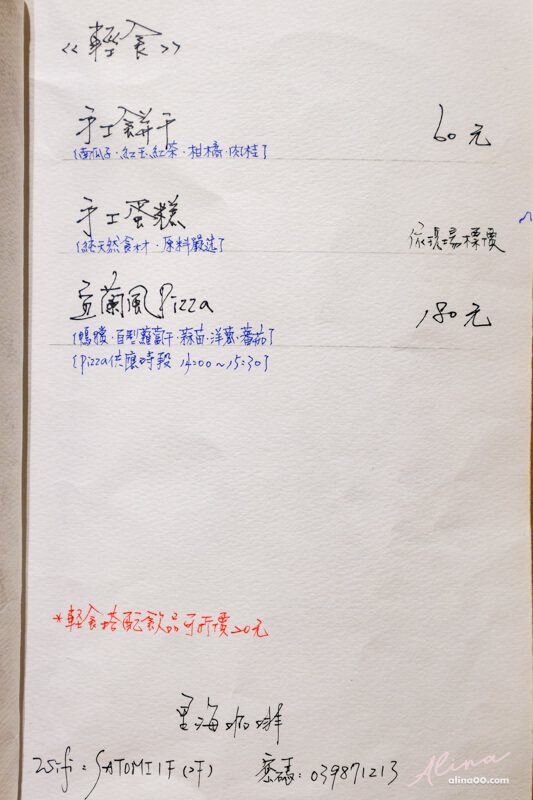 《輕食》
手工餅干 60元
(南瓜子・紅玉紅茶・柑橘・肉桂)
手工蛋糕 依現場標價
(純天然食材・原料嚴選)
宜蘭風Pizza 180元
(鴨賞・百里蘿蔔干・蒜苗・洋蔥・蕃茄)
(Pizza供應時段 14:00~15:30)
*輕食搭配飲品可折價20元
里海咖啡
Wifi: SATOMI 1F (2F) 密碼: 039871213
Alina
alina00.com